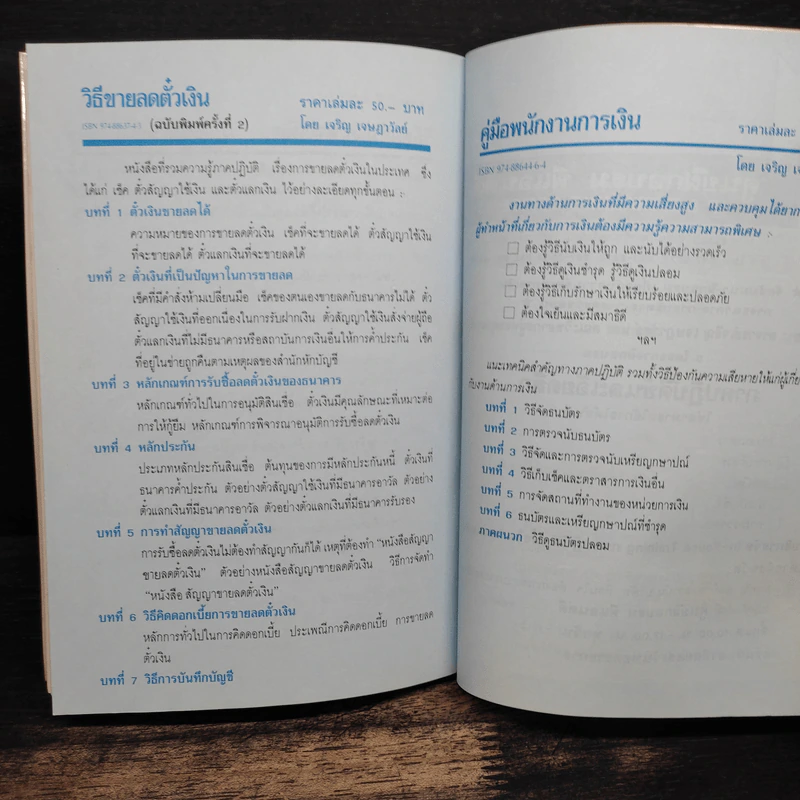 วิธีขายลดตั๋วเงิน ราคาเล่มละ 50.- บาท
(ฉบับพิมพ์ครั้งที่ 2) โดย เจริญ เจษฎาวัลย์
หนังสือที่รวมความรู้ภาคปฏิบัติ เรื่องการขายลดตั๋วเงินในประเทศ ซึ่ง
ได้แก่ เช็ค ตั๋วสัญญาใช้เงิน และตั๋วแลกเงิน ไว้อย่างละเอียดทุกขั้นตอน :-
บทที่ 1 ตั๋วเงินขายลดได้
ความหมายของการขายลดตั๋วเงิน เช็คที่จะขายลดได้ ตั๋วสัญญาใช้เงิน
ที่จะขายลดได้ ตั๋วแลกเงินที่จะขายลดได้
บทที่ 2 ตั๋วเงินที่เป็นปัญหาในการขายลด
เช็คที่มีคำสั่งห้ามเปลี่ยนมือ เช็คของตนเองขายลดกับธนาคารไม่ได้ ตั๋ว
สัญญาใช้เงินที่ออกเนื่องในการรับฝากเงิน ตั๋วสัญญาใช้เงินสั่งจ่ายผู้ถือ
ตั๋วแลกเงินที่ไม่มีธนาคารหรือสถาบันการเงินอื่นให้การค้ำประกัน เช็ค
ที่อยู่ในข่ายถูกคืนตามเหตุผลของสำนักหักบัญชี
บทที่ 3 หลักเกณฑ์การรับซื้อลดตั๋วเงินของธนาคาร
หลักเกณฑ์ทั่วไปในการอนุมัติสินเชื่อ ตั๋วเงินมีคุณลักษณะที่เหมาะต่อ
การให้กู้ยืม หลักเกณฑ์การพิจารณาอนุมัติการรับซื้อลดตั๋วเงิน
บทที่ 4 หลักประกัน
ประเภทหลักประกันสินเชื่อ ต้นทุนของการมีหลักประกันหนี้ ตั๋วเงินที่
ธนาคารค้ำประกัน ตัวอย่างตั๋วสัญญาใช้เงินที่มีธนาคารอาวัล ตัวอย่าง
ตั๋วแลกเงินที่มีธนาคารอาวัล ตัวอย่างตั๋วแลกเงินที่มีธนาคารรับรอง
บทที่ 5 การทำสัญญาขายลดตั๋วเงิน
การรับซื้อลดตั๋วเงินไม่ต้องทำสัญญากันก็ได้ เหตุที่ต้องทำ "หนังสือสัญญา
ขายลดตั๋วเงิน" ตัวอย่างหนังสือสัญญาขายลดตั๋วเงิน วิธีการจัดทำ
"หนังสือ สัญญาขายลดตั๋วเงิน"
บทที่ 6 วิธีคิดดอกเบี้ยการขายลดตั๋วเงิน
หลักการทั่วไปในการคิดดอกเบี้ย ประเพณีการคิดดอกเบี้ย การขายลด
ตั๋วเงิน
บทที่ 7 วิธีการบันทึกบัญชี
คู่มือพนักงานการเงิน ราคาเล่มละ
ISBN 974-88644-6-4 โดย เจริญ
งานทางด้านการเงินที่มีความเสี่ยงสูง และควบคุมได้ยาก
ผู้ทำหน้าที่เกี่ยวกับการเงินต้องมีความรู้ความสามารถพิเศษ :-
ต้องรู้วิธีนับเงินให้ถูก และนับได้อย่างรวดเร็ว
ต้องรู้วิธีดูเงินชำรุด รู้วิธีดูเงินปลอม
ต้องรู้วิธีเก็บรักษาเงินให้เรียบร้อยและปลอดภัย
ต้องใจเย็นและมีสมาธิดี
ฯลฯ
แนะเทคนิคสำคัญทางภาคปฏิบัติ รวมทั้งวิธีป้องกันความเสียหายให้แก่ผู้เกี่ย
กับงานด้านการเงิน
บทที่ 1 วิธีจัดธนบัตร
บทที่ 2 การตรวจนับธนบัตร
บทที่ 3 วิธีจัดและการตรวจนับเหรียญกษาปณ์
บทที่ 4 วิธีเก็บเช็คและตราสารการเงินอื่น
บทที่ 5 การจัดสถานที่ทำงานของหน่วยการเงิน
บทที่ 6 ธนบัตรและเหรียญกษาปณ์ที่ชำรุด
ภาคผนวก วิธีดูธนบัตรปลอม